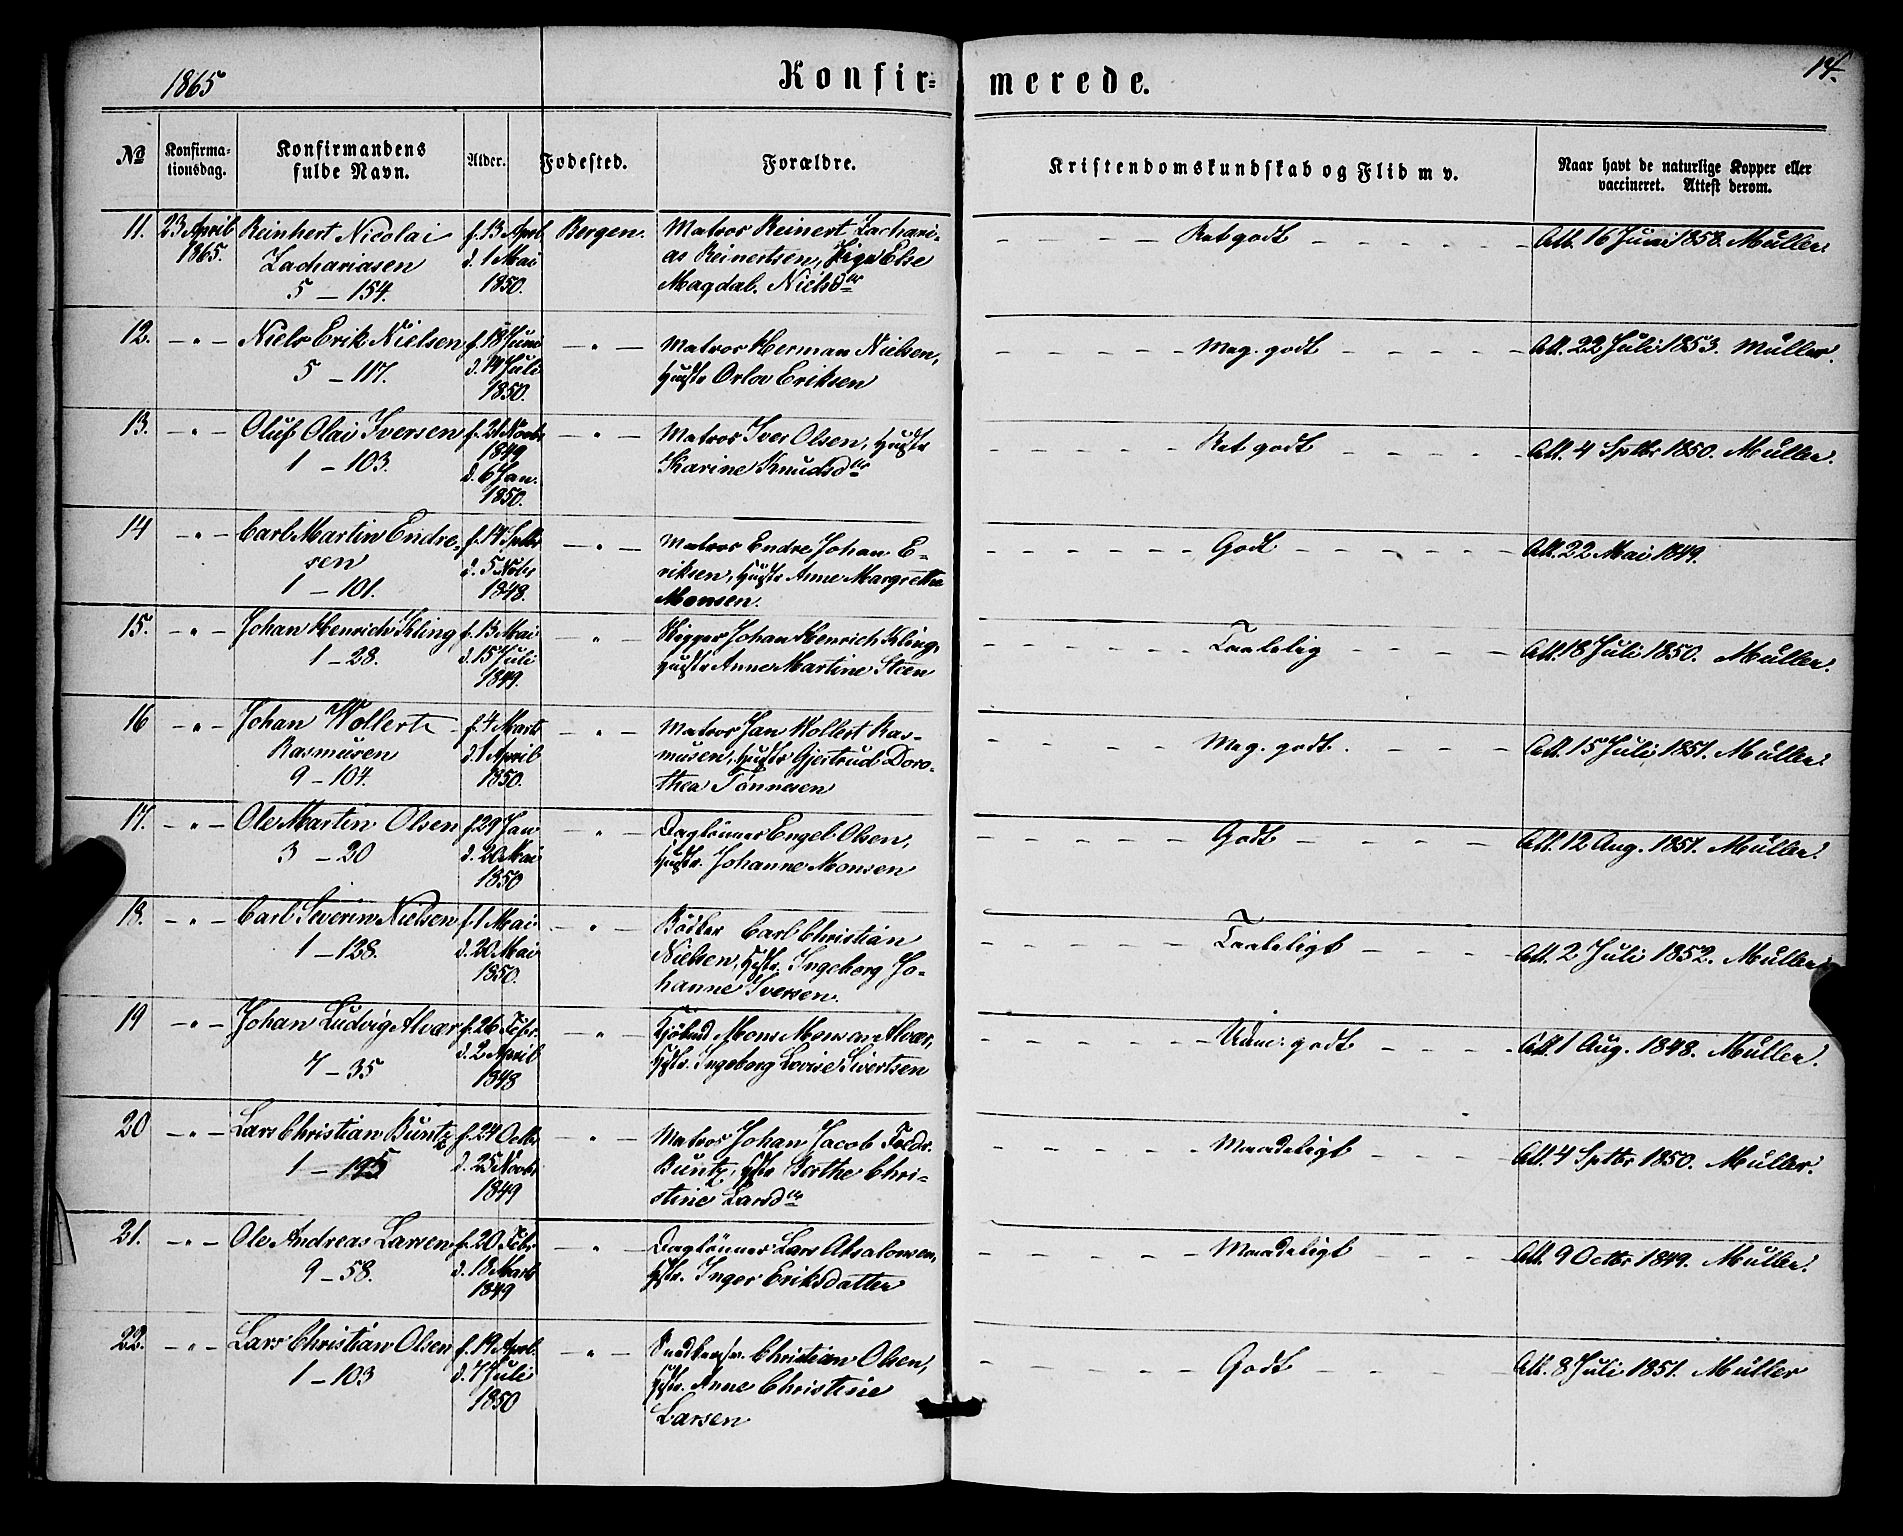 1865
Konfir-
merede.
14.
No
Konfirma-
tionsdag.
Konfirmandens
fulde Navn.
Alder.
Fødested.
Forældre.
Kristendomskundskab og Flid m v.
Naar havt de naturlige Kopper eller
vaccineret. Attest derom.
11. 23 April Reinhert Nicolai f. 13 Aprl Bergen. Matros Reinert Zachari- Ret godt Att. 16 Juni 1858. Müller.
1865. Zachariasen d. 1 Mai as Reinertsen, Else
5 - 154. 1850. Magdal. Nielsdr
12. - " - Niels Erik Nielsen f. 18 Juni - " - Matros Herman Nielsen, Meg. godt Att. 22 Juli 1853. Müller.
5 - 117. d. 14 Juli Hustr Orlov Eriksen
1850.
13. - " - Oluf Olai Iversen f. 21 Novbr - " - Matros Iver Olsen, Hustr Ret godt Att. 4 Septbr 1850. Müller.
1 - 103. 1849 Karine Knudsdr
d. 6 Jan.
1850.
14 - " - Carl Martin Endre- f. 14 Septbr - " - Matros Endre Johan E- Godt Att. 22 Mai 1849.
sen d. 5 Nobr riksen, Hustr Anne Margrethe
1 - 101. 1848. Monsen.
15. - " - Johan Henrich Kling f. 13 Mai - " - Rigger Johan Henrich Kling, Taalelig Att. 18 Juli 1850. Müller.
1 - 28. d. 15 Juli Hustr Anne Martine Steen
1849.
16 - " - Johan Wollert f. 4 Marts - " - Matros Jan Wollert Ras- Meg. godt. Att. 15 Juli 1851. Müller.
Rasmusen d. 1 April musen, Hustr Gjertrud Doro-
9 - 104. 1850. thea Tönnesen
17. - " - Ole Martin Olsen f. 29 Jan - " - Daglönner Engel Olsen, Godt Att. 12 Aug. 1851. Müller.
3 - 20 d. 20 Mai Hustr. Johanne Monsen
1850
18. - " - Carl Severin Nielsen f. 1 Mai - " - Bödker Carl Christian Taaleligt Att. 2 Juli 1852. Müller
1 - 128. d. 20 Mai Nielsen, Hstr. Ingeborg Jo-
1850. hanne Iversen.
19 - " - Johan Ludvig Alvær f. 26 Febr. - " - Mons Monsen Alvær, Udm. godt Att. 1 Aug. 1848. Müller.
7 - 35 d. 2 April Hstr. Ingeborg Lovise Sivertsen
1848
20 - " - Lars Christian Buntz f. 24 Octbr - " - Matros Johan Jacob Fredr. Maadeligt Att. 4 Septbr 1850. Müller.
1 - 195 d. 25 Novbr Buntz, Hstr Berthe Chri-
1849 stine Larsdr
21. - " - Ole Andreas Larsen f. 20 Febr - " - Daglönner Lars Absalonsen, Maadeligt Att. 9 Octbr 1849. Müller.
9 - 58. d. 18 Marts Hstr. Inger Eriksdatter
1849
22. - " - Lars Christian Olsen f. 19 Aprl. - " - Christian Olsen, Godt Att. 8 Juli 1851. Müller
1 - 103 d. 7 Juli Hstr. Anne Christine
1850 Larsen